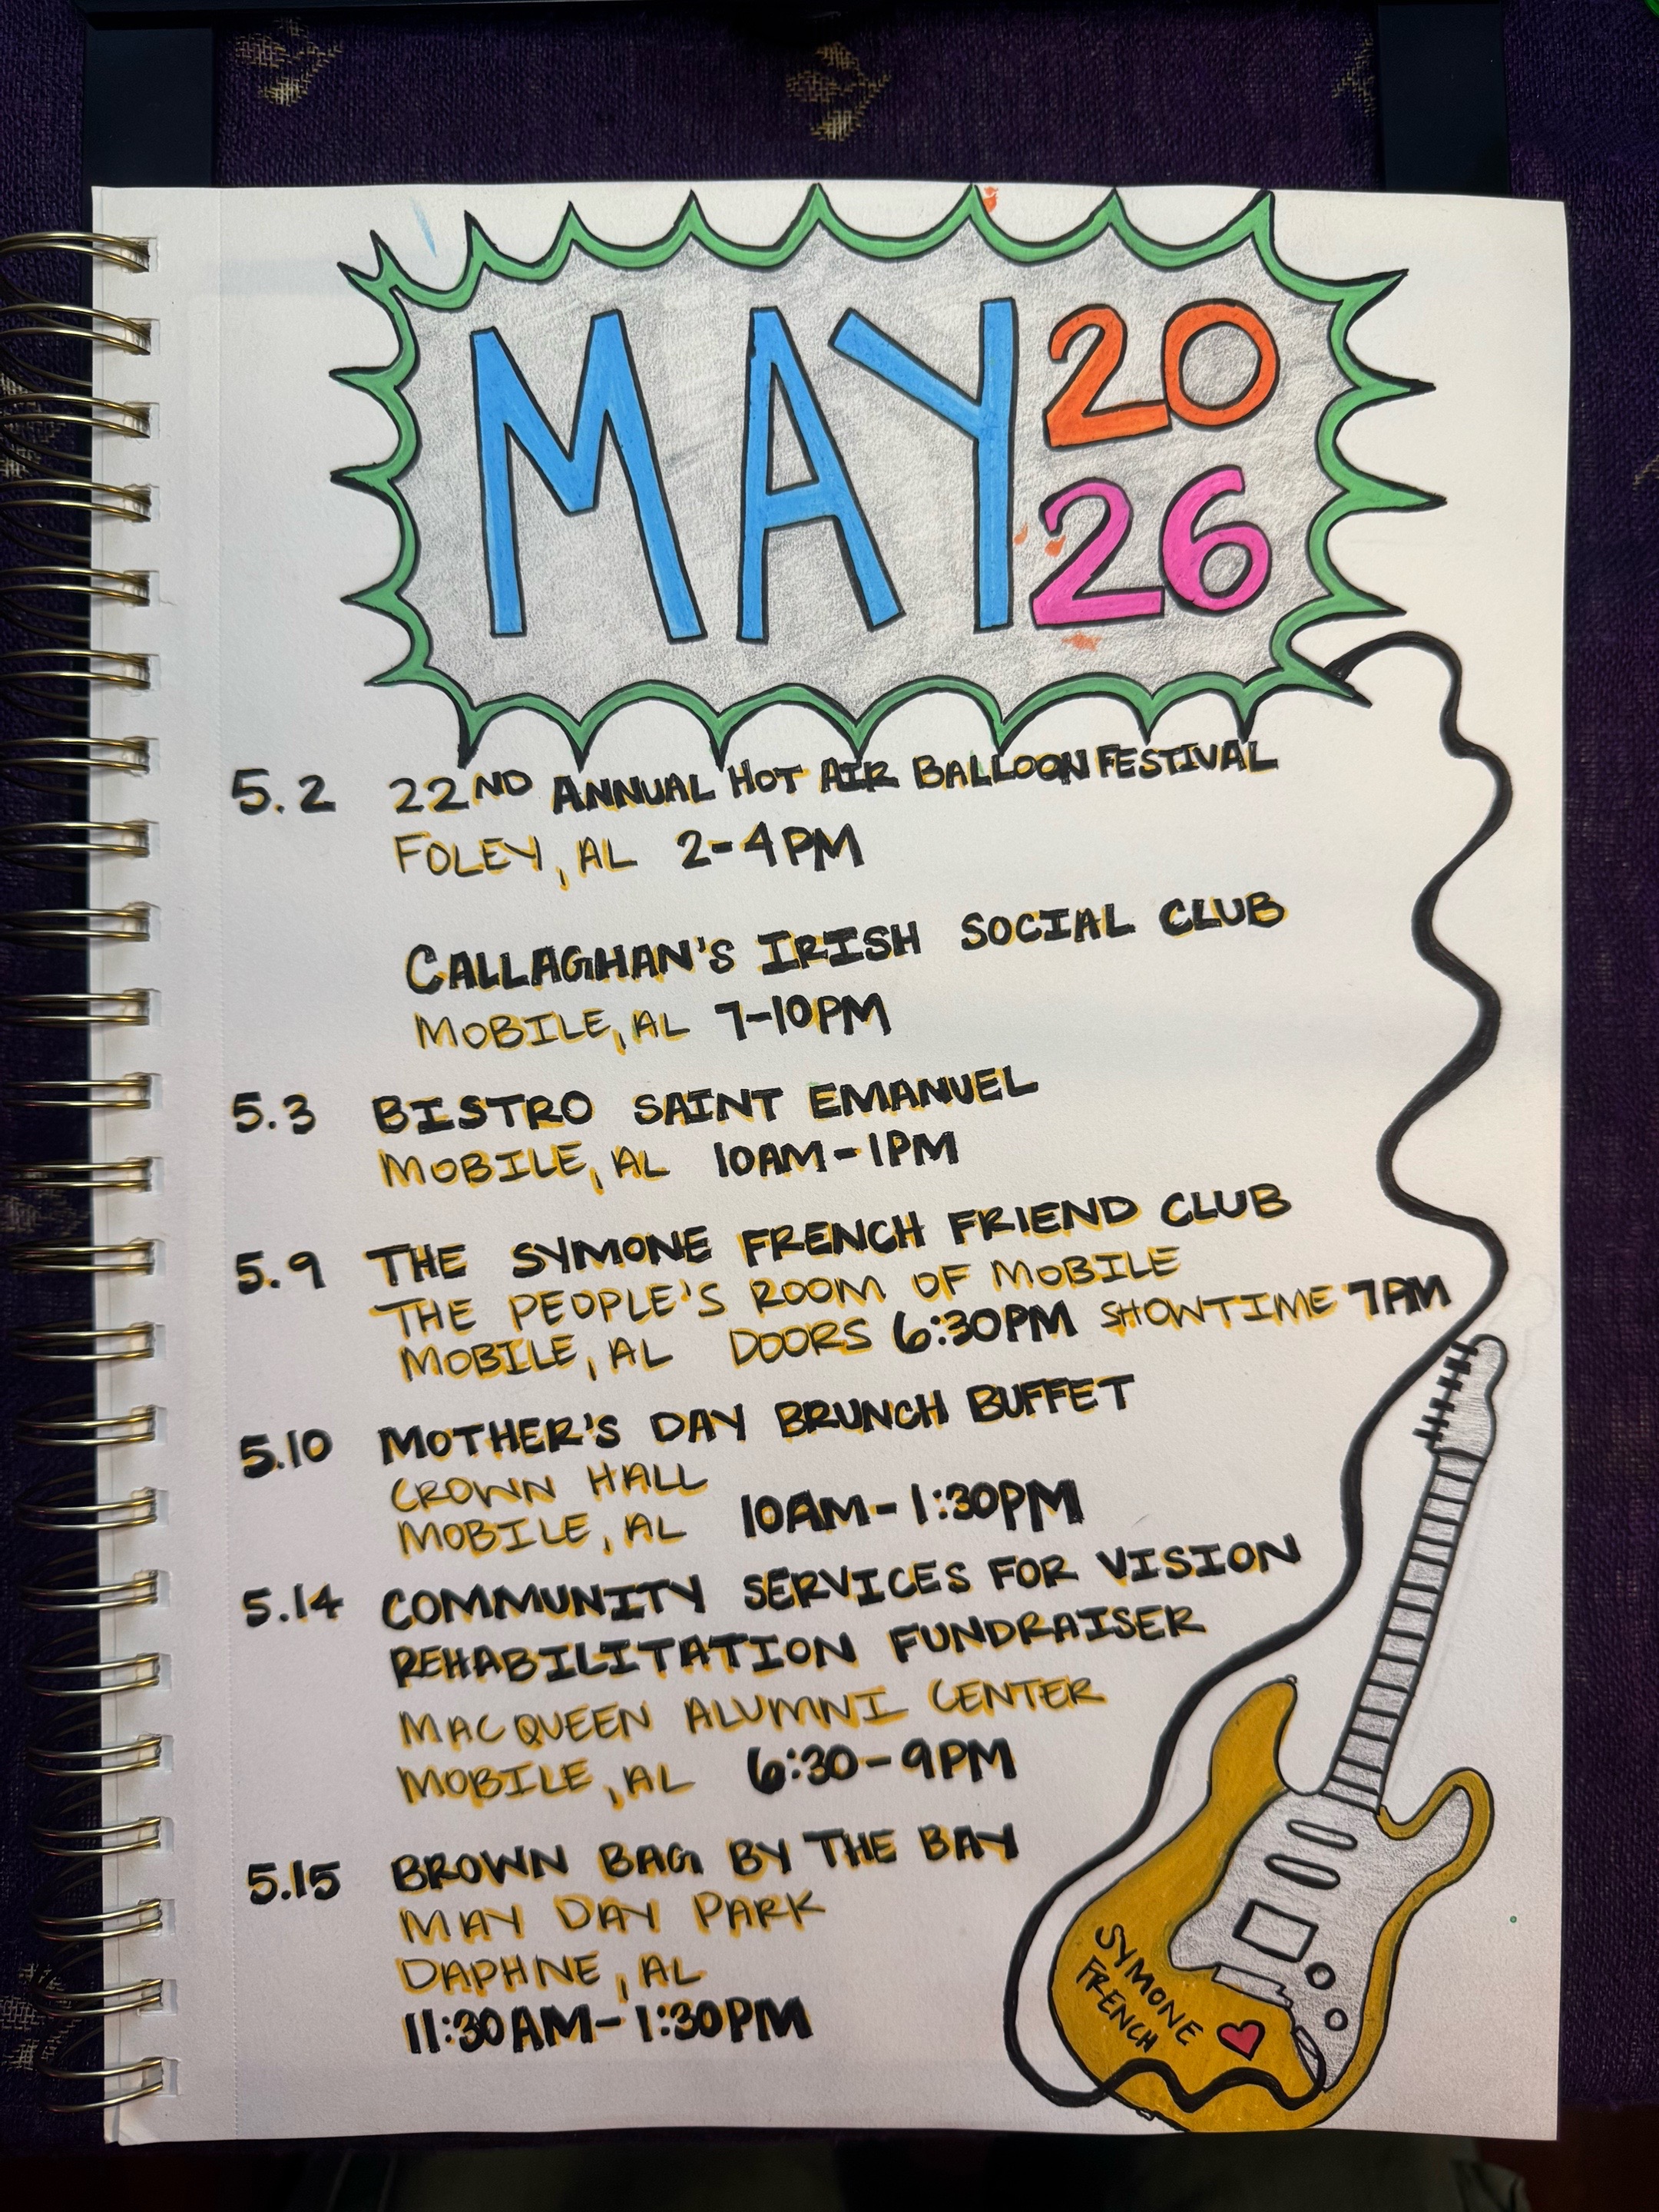 MAY 20
26
5.2 22ND ANNUAL HOT AIR BALLOON FESTIVAL
FOLEY, AL 2-4PM
CALLAGHAN'S IRISH SOCIAL CLUB
MOBILE, AL 7-10PM
5.3 BISTRO SAINT EMANUEL
MOBILE, AL 10AM-1PM
5.9 THE SYMONE FRENCH FRIEND CLUB
THE PEOPLE'S ROOM OF MOBILE
MOBILE, AL DOORS 6:30PM SHOWTIME 7PM
5.10 MOTHER'S DAY BRUNCH BUFFET
CROWN HALL
MOBILE, AL 10AM-1:30PM
5.14 COMMUNITY SERVICES FOR VISION
REHABILITATION FUNDRAISER
MACQUEEN ALUMNI CENTER
MOBILE, AL 6:30-9PM
5.15 BROWN BAG BY THE BAY
MAY DAY PARK
DAPHNE, AL
11:30AM-1:30PM
SYMONE
FRENCH